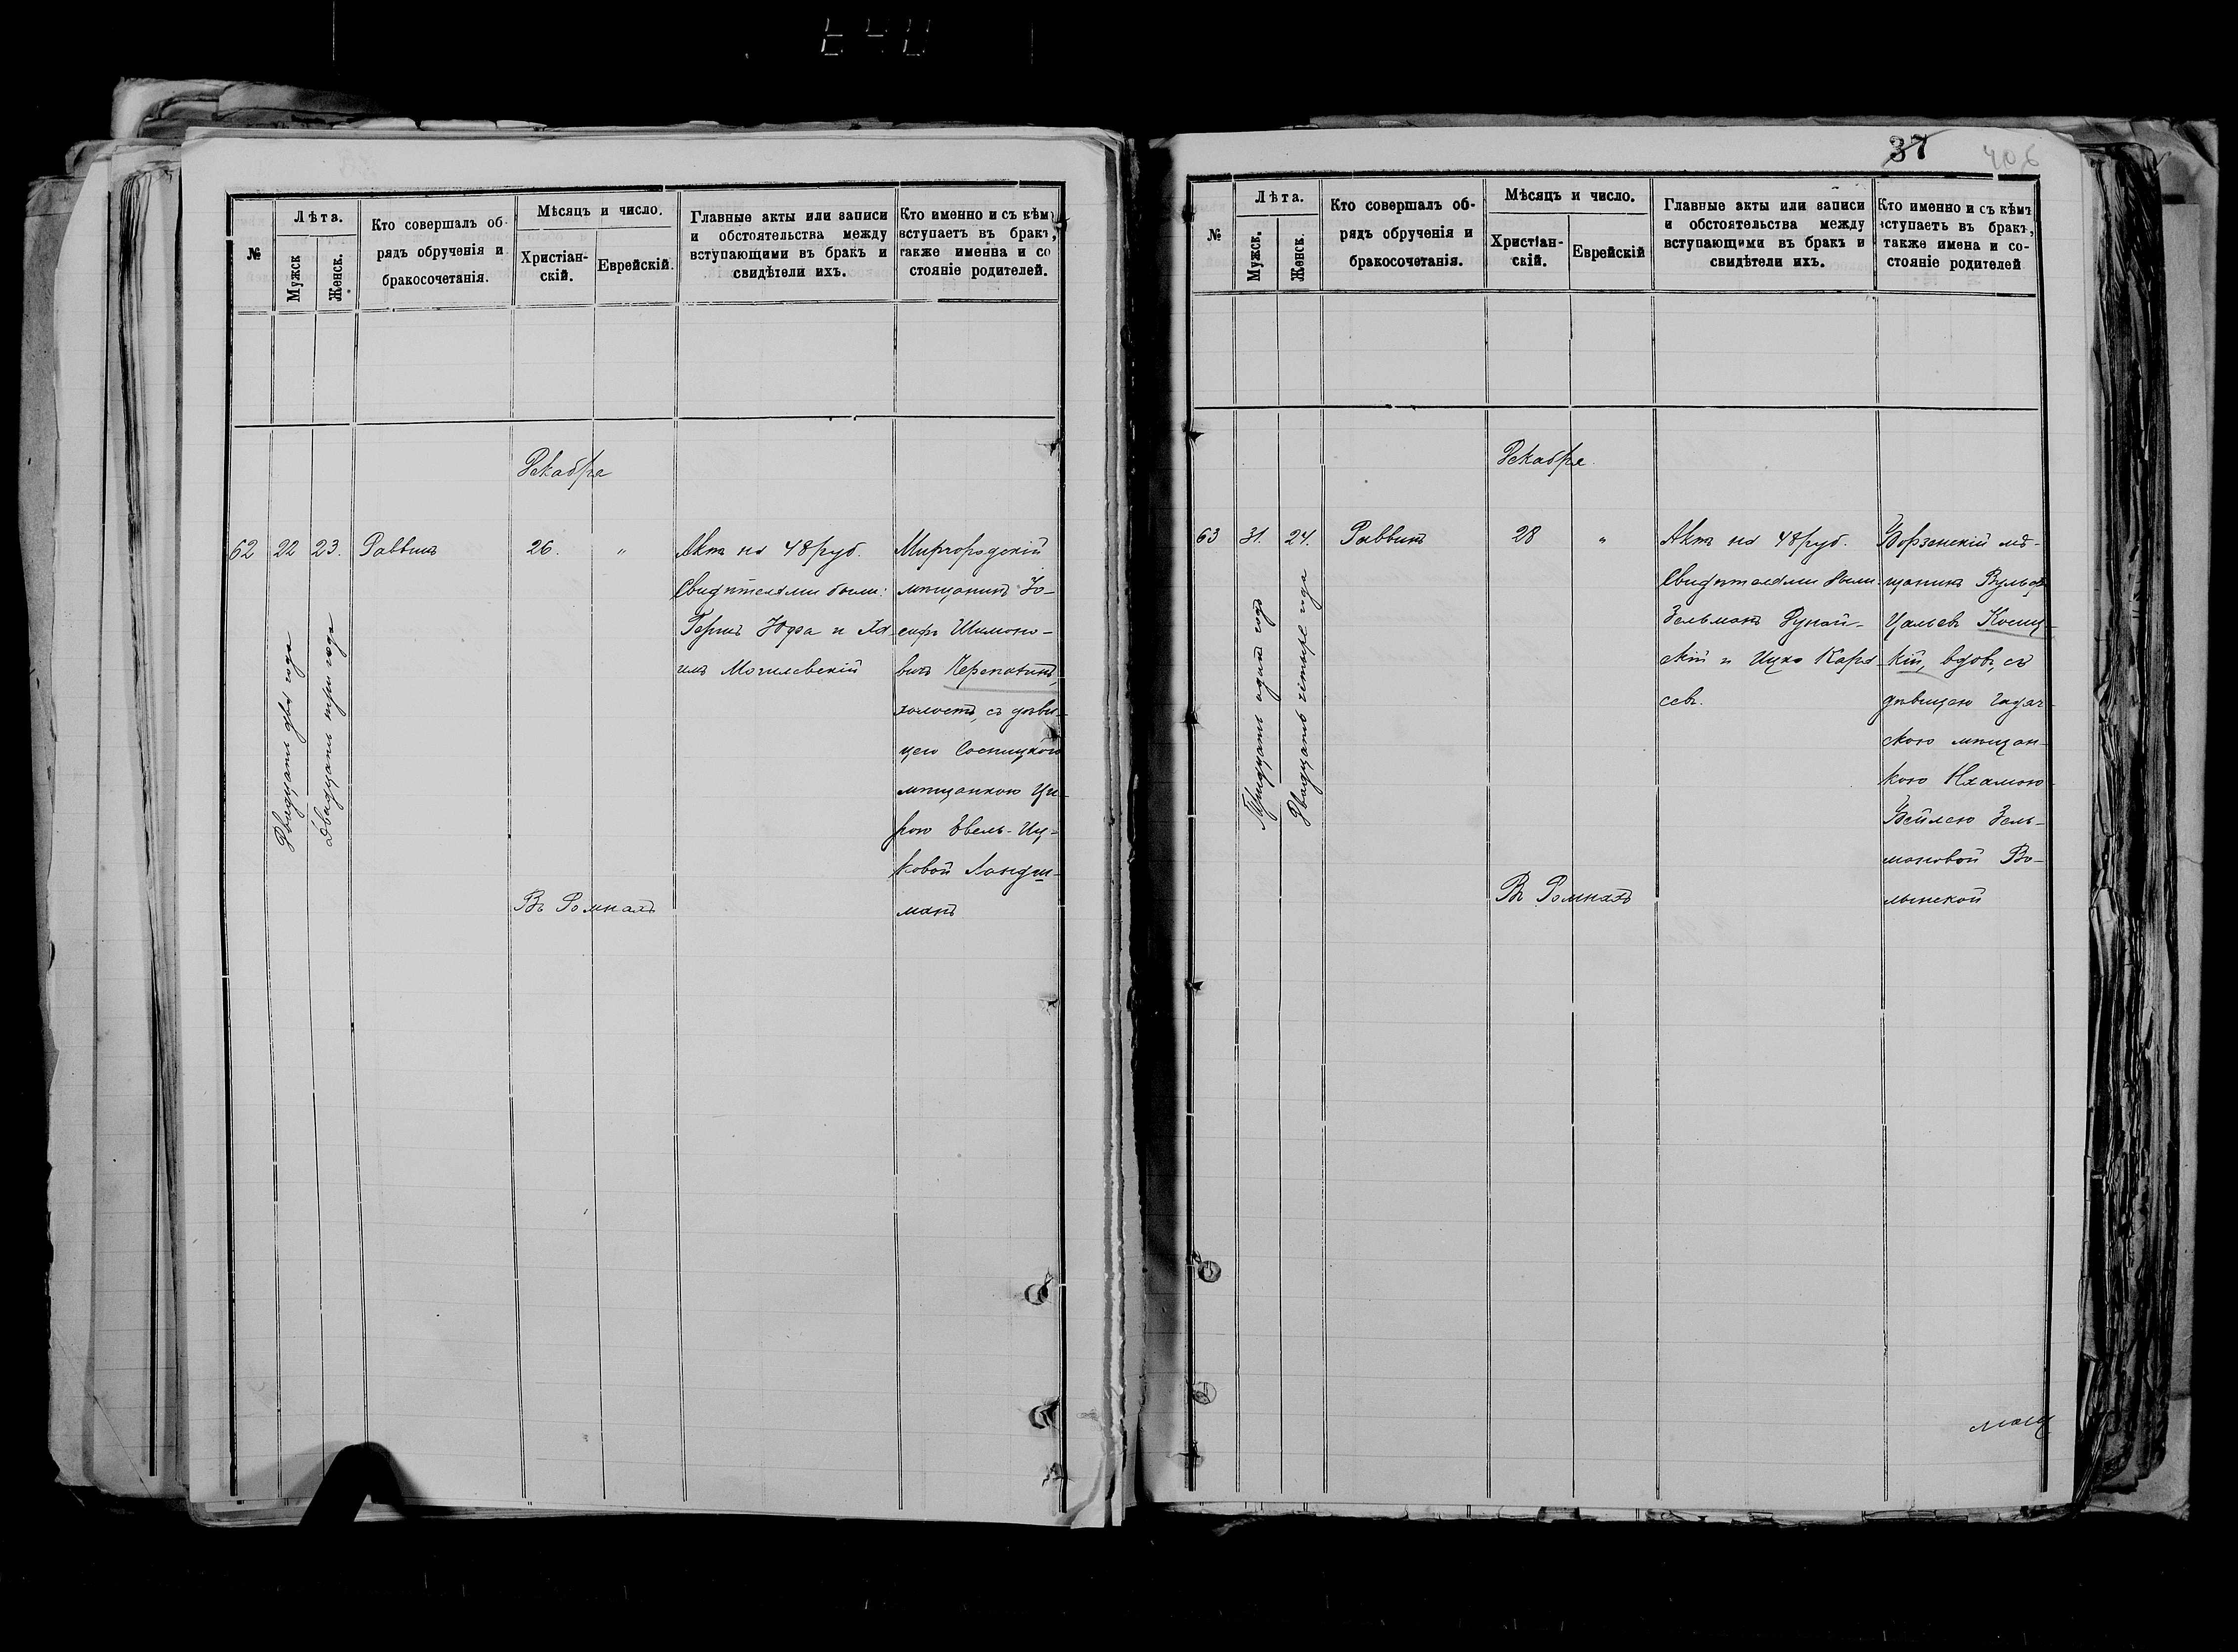 №
Лѣта.
Мужск
Женск.
Кто совершалъ об-
рядъ обрученія и
бракосочетанія.
Мѣсяцъ и число.
Христіан-
скій.
Еврейскій.
Главные акты или записи
и обстоятельства между
вступающими въ бракъ и
свидѣтели ихъ.
Кто именно и съ кѣмъ
вступаетъ въ бракъ,
также имена и со
стояніе родителей.
Декабря
62
22
23.
Двадцать два года
двадцать три года
Раввинъ
26.
"
Въ Ромнахъ
Актъ на 48 руб.
Свидѣтелями были:
Гершъ Юфа и Ха
имъ Могилевскій
Миргородскій
мѣщанинъ Іо-
сифъ Шимоно-
вичъ Перепатинъ,
холостъ, съ дѣви-
цею Сосницкою
мѣщанкою Ци-
рою Евель-Иц-
ковой Ландш-
манъ
37
406
№
Лѣта.
Мужск.
Женск.
Кто совершалъ об-
рядъ обрученія и
бракосочетанія.
Мѣсяцъ и число.
Христіан-
скій.
Еврейскій
Главные акты или записи
и обстоятельства между
вступающими въ бракъ и
свидѣтели ихъ.
Кто именно и съ кѣмъ
вступаетъ въ бракъ,
также имена и со-
стояніе родителей
Декабря
63
31.
24.
Тридцать одинъ годъ
Двадцать четыре года
Раввинъ
28
"
Въ Ромнахъ
Актъ на 48 руб.
Свидѣтелями были
Зельманъ Дунай-
скій и Ицко Кара
севъ.
Борзенскій мѣ-
щанинъ Вульфъ
Цалевъ Косиц-
кій, вдовъ, съ
дѣвицею Гадяч-
скою мѣщан-
кою Нхамою-
Бейлею Зель-
мановой Во-
лынской